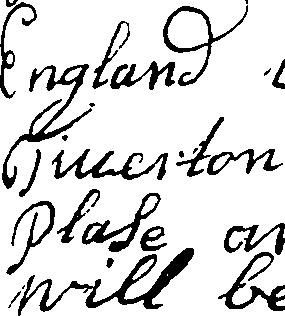 England
Tiverton
Plase an
will be